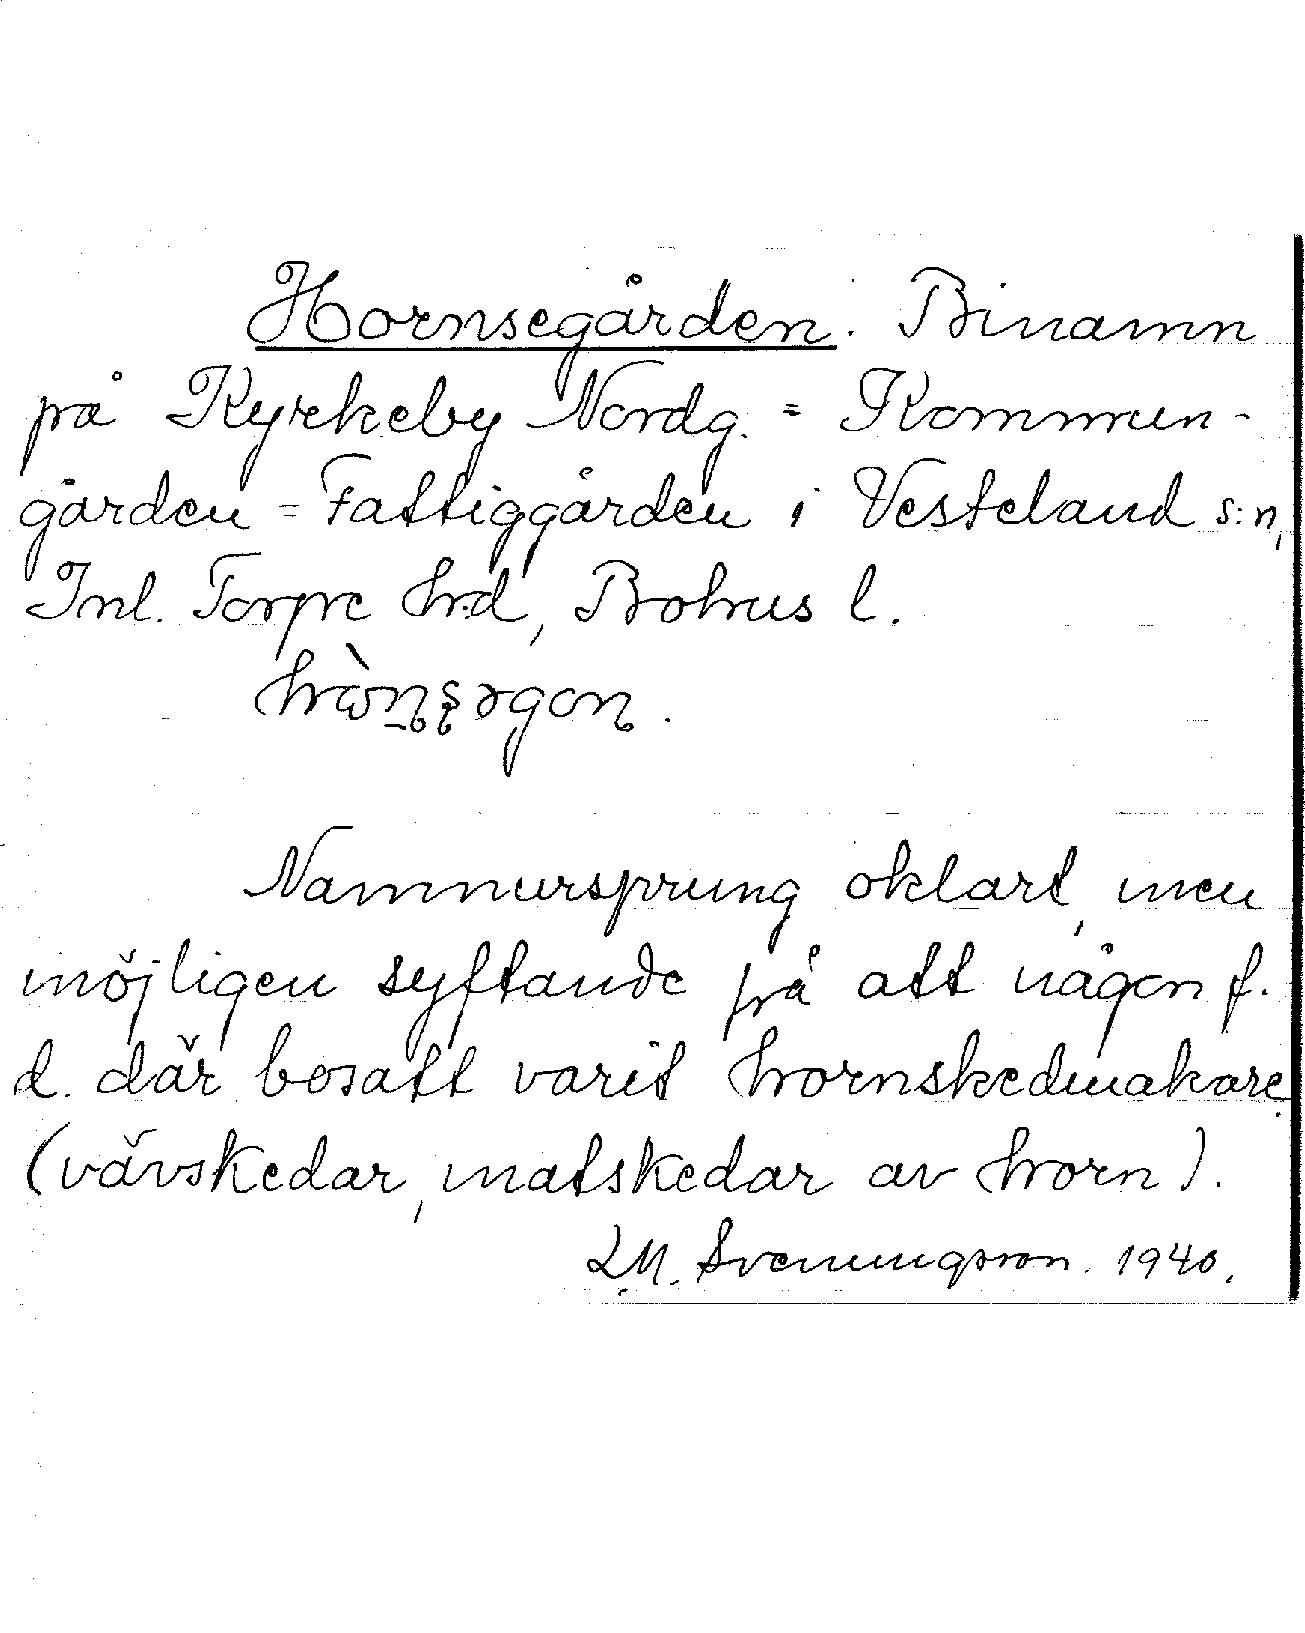 Hornsegården. Binamn
på Kyrkeby Nordg. = Kommun-
gården = Fattiggården i Vesteland s:n,
Inl. Torpe hrd, Bohus l.
Namnursprung oklart, men
möjligen syftande på att någon f.
d. där bosatt varit hornskedmakare
(vävskedar, matskedar av horn).
LM. Svenungsson. 1940.